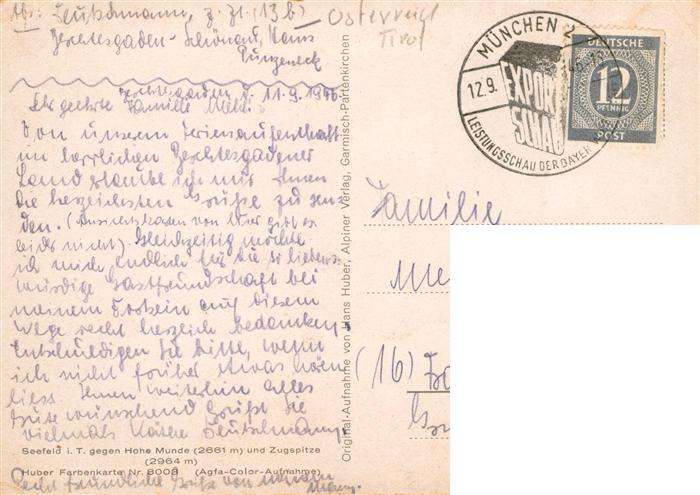 Abs. Deutschmann, z. Zt. (13b)
Berchtesgaden - Schönau, Haus
Punzeneck
Österreich
Tirol
Berchtesgaden, d. 11.9.1946
Sehr geehrte Familie
Von unserem Ferienaufenthalt
im herrlichen Berchtesgadener
Land erlaube ich mir Ihnen
die herzlichsten Grüße zu sen-
den. (Ansichtskarten von hier gibt es
leider nicht) Gleichzeitig möchte
ich mich endlich für die so liebens-
würdige Gastfreundschaft bei
meinem Dortsein auf diesem
Wege recht herzlich bedanken,
Entschuldigen Sie bitte, wenn
ich nicht früher etwas hören
liess. Ihnen weiterhin alles
Gute wünschend grüßt Sie
vielmals Deutschmann
Seefeld i. T. gegen Hohe Munde (2661 m) und Zugspitze
(2964 m)
Huber Farbenkarte Nr. 8009 (Agfa-Color-Aufnahme)
Recht freundliche Grüße von
Original-Aufnahme von Hans Huber, Alpiner Verlag, Garmisch-Partenkirchen
MÜNCHEN 2
12.9.
EXPORT
SCHAU
LEISTUNGSSCHAU DER BAYER
DEUTSCHE
12
PFENNIG
POST
Familie
(16)